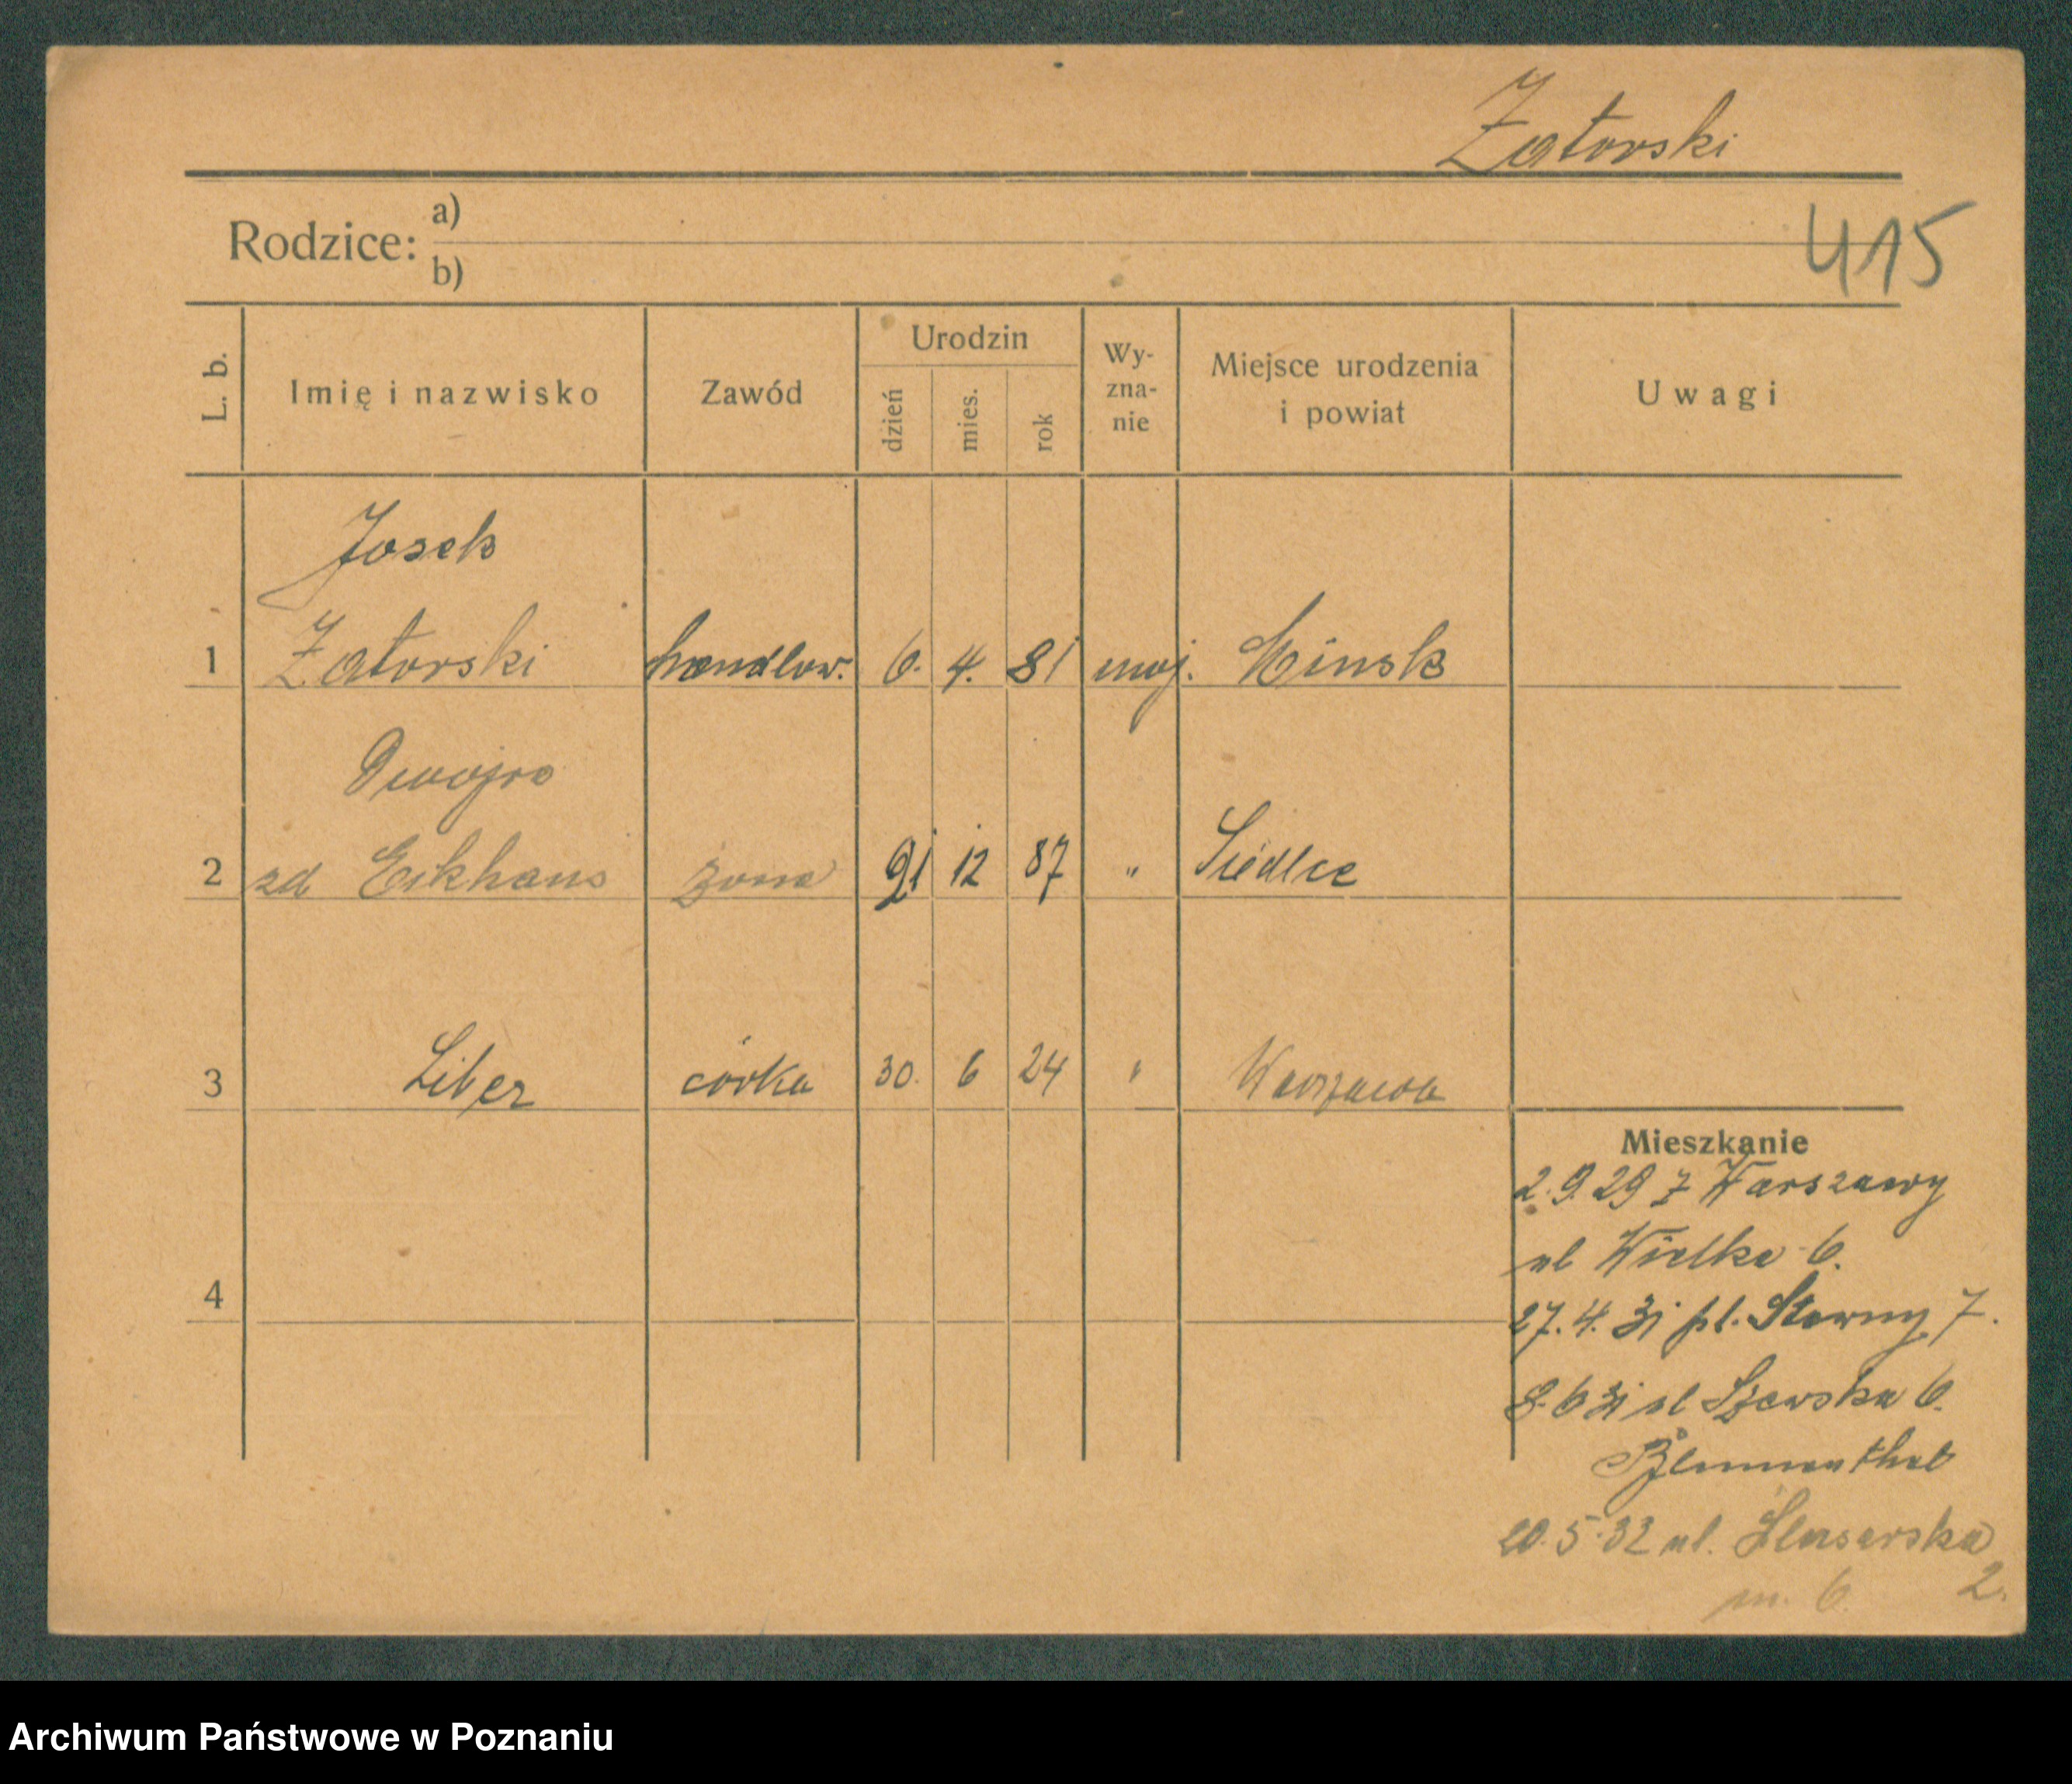 Zatorski
415
Rodzice: a)
b)
L. b.
Imię i nazwisko
Zawód
Urodzin
dzień
mies.
rok
Wy-
zna-
nie
Miejsce urodzenia
i powiat
Uwagi
Josek
1 Zatorski handlow. 6. 4. 81 moj. Mińsk
Dwojra
2 zd Eckhaus żona 21 12 87 " Siedlce
3 Liber córka 30. 6 24 " Warszawa
4
Mieszkanie
2.9.29 z Warszawy
ul Wielka 6.
27.4.31 pl. Stawny 7.
8.6 31 ul Szewska 6.
Blumenthal
20.5.32 ul. Ślusarska
m. 6 2.
Archiwum Państwowe w Poznaniu